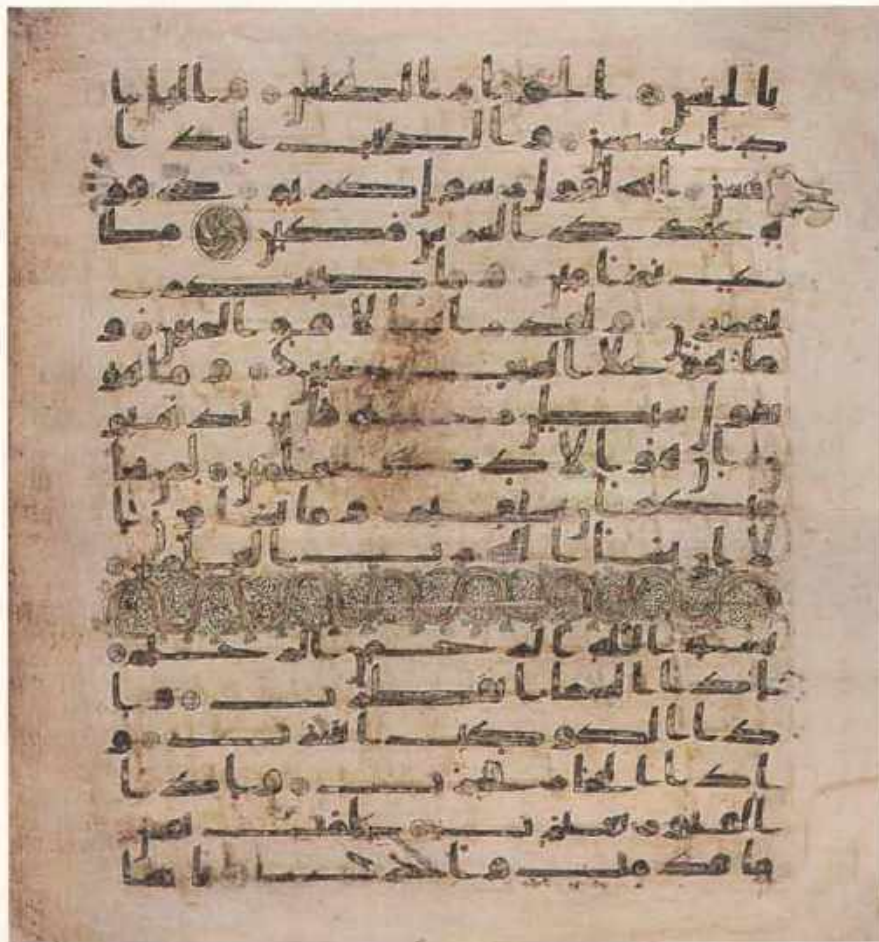 بالخنس الجوار الكنس واليل اذا
عسعس والصبح اذا ت
نفس انه لقول رسول كريم ذي قو
ة عند ذي العرش مكين مطا
ع ثم امين وما صاحبكم
بمجنون ولقد راه بالافق المبين و
ما هو على الغيب بضنين وما هو
بقول شيطن رجيم فاين تذهبو
ن ان هو الا ذكر للعلمين لمن شا
منكم ان يستقيم وما تشاون ا
لا ان يشا الله رب العلمين
بسم الله الرحمن الرحيم
اذا السما انفطرت وا
ذا الكوكب انتثرت و
اذا البحار فجرت واذا
القبور بعثرت علمت نفس
ما قدمت واخرت يايها